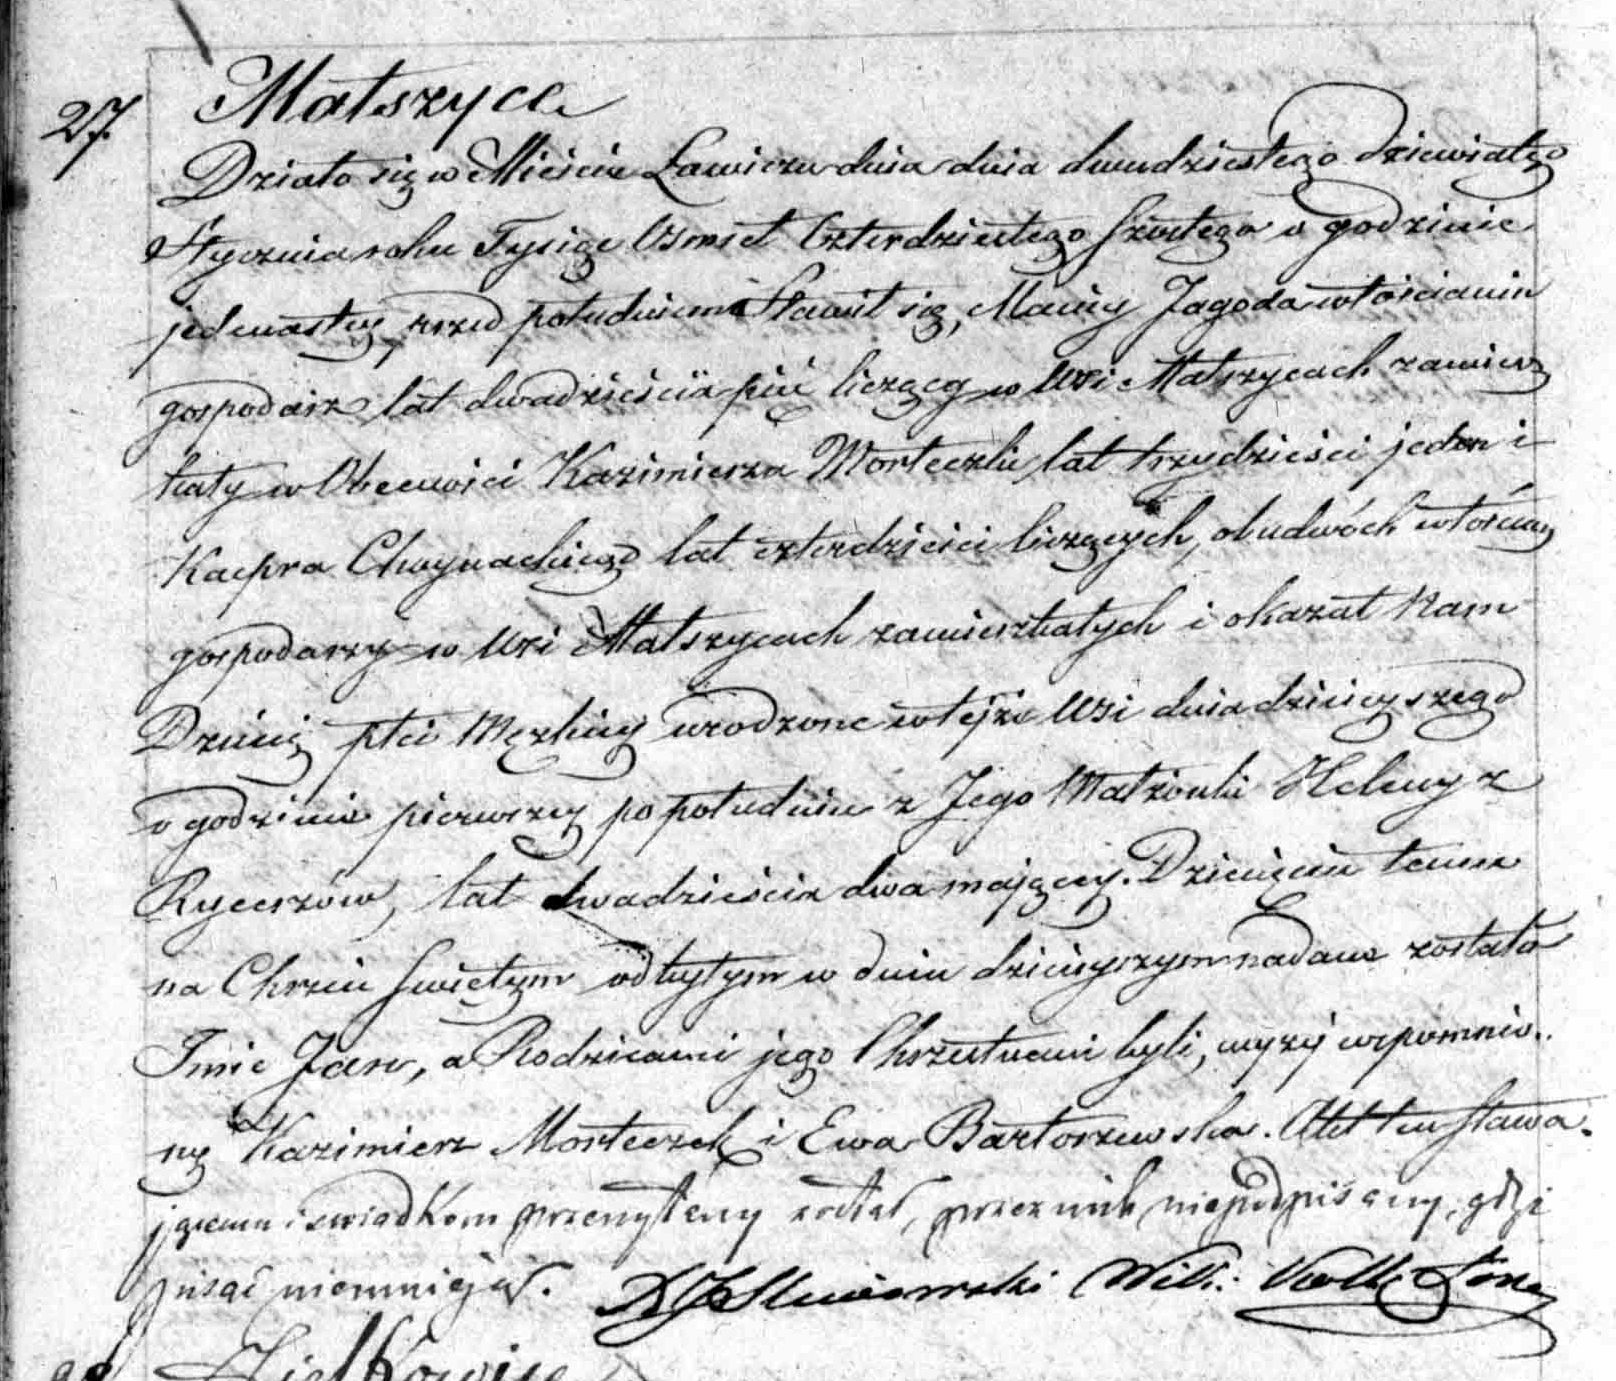 27. Matszyce
Działo się w Mieście Łowiczu dnia dnia dwudziestego dziewiątego
Stycznia roku Tysiąc Osmset Czterdziestego Szóstego o godzinie
jedenastey przed południem Stawił się, Maciey Jagoda włościanin
gospodarz lat dwadzieścia pięć liczący w Wsi Matszycach zamiesz
kały w Obecności Kazimierza Morteczki lat trzydzieści jeden i
Kacpra Chwynackiego lat czterdzieści liczących, obudwóch włościan
gospodarzy w Wsi Matszycach zamieszkałych i okazał Nam
Dziecię płci Męzkiey urodzone w tejże Wsi dnia dzisieyszego
o godzinie pierwszey po południu z Jego Małżonki Heleny z
Rycerzów, lat dwadzieścia dwa mającey. Dziecięciu temu
na Chrzcie Swiętym odbytym w dniu dzisieyszym nadane zostało
Imie Jan, a Rodzicami jego Chrzestnemi byli, wyżej wspomnio..
ny Kazimierz Morteczek i Ewa Bartoszewska. Akt ten Stawa.
jącemu i swiadkom przeczytany został, przez nich niepodpisany, gdyż
pisać nieumnieją.